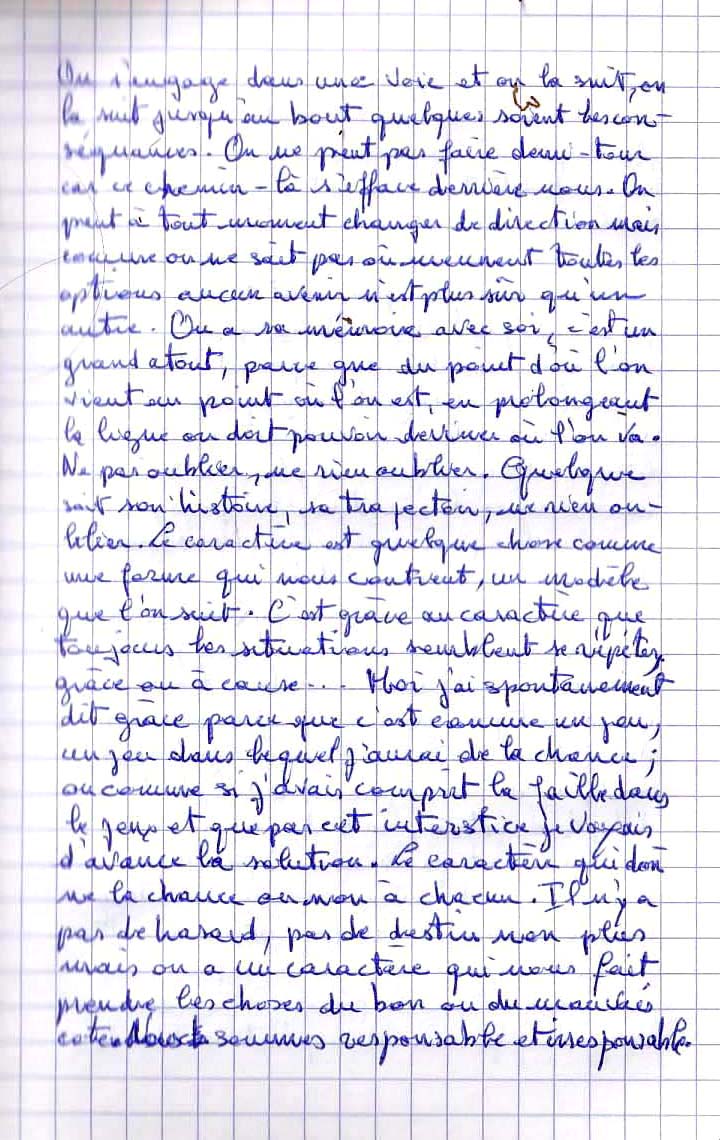 On s'engage dans une voie et on la suit, on
la suit jusqu'au bout quelques soient les con-
séquances. On ne peut pas faire demi-tour
car ce chemin-là s'efface derrière nous. On
peut à tout moment changer de direction mais
comme on ne sait pas où mennent toutes les
options aucun avenir n'est plus sûr qu'un
autre. On a sa mémoire avec soi, c'est un
grand atout, parce que du point d'où l'on
vient au point où l'on est, en prolongeant
la ligne on doit pouvoir deviner où l'on va.
Ne pas oublier, ne rien oublier. Quelque
soit son histoire, sa trajectoir, ne rien ou-
blier. Le caractère est quelque chose comme
une forme qui nous contient, un modèle
que l'on suit. C'est grâce au caractère que
toujours les situations semblent se répéter
grâce ou à cause... Moi j'ai spontanement
dit grâce parce que c'est comme un jeu,
un jeu dans lequel j'aurai de la chance ;
ou comme si j'avais comprit la faille dans
le jeux et que par cet interstice je voyais
d'avance la solution. Le caractère qui don
ne la chance ou non à chacun. Il n'y a
pas de hasard, pas de destin non plus
mais on a un caractère qui nous fait
prendre les choses du bon ou du mauvais
coté. Nous sommes responsable et irresponsable.